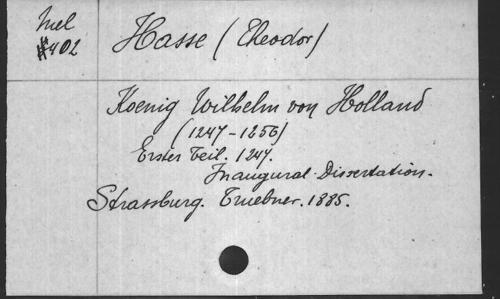 Mel
#402
Hasse (Theodor)
Koenig Wilhelm von Holland
(1247-1256)
Erster Teil. 1247.
Inaugural-Dissertation.
Strassburg. Truebner. 1885.